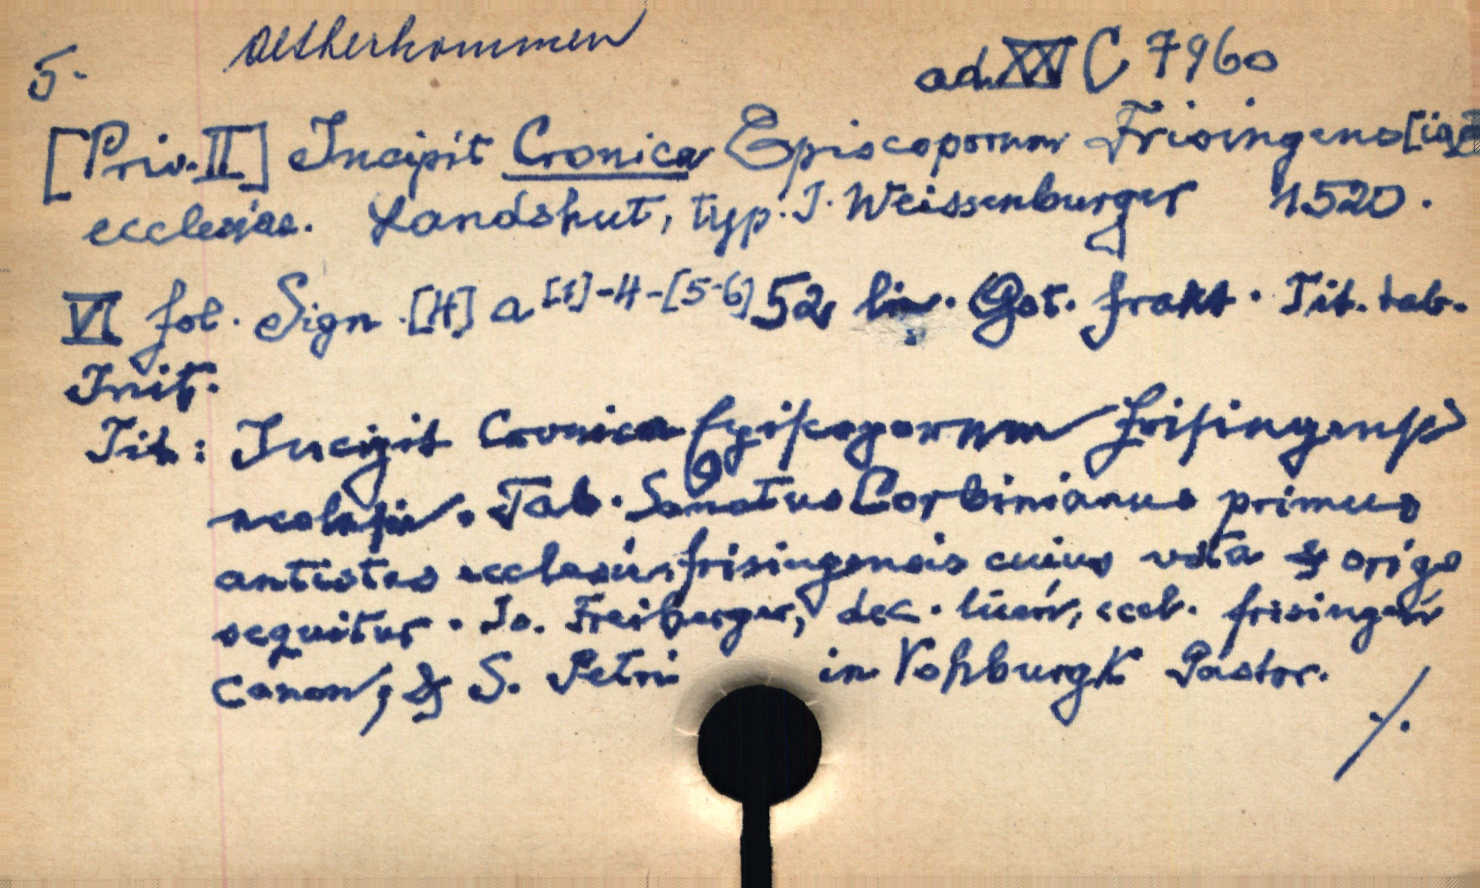 Altherkommen
5. ad. XX C 7960
[Priv. II] Incipit Cronica Episcoporum Frisingens[ia]
ecclesiae. Landshut, typ. J. Weissenburger 1520.
VI fol. Sign. [4] a [1]-4-[5-6] 52 lin. Got. frakt. Tit. tab.
Init.
Tit: Incipit Cronica Episcoporum frisingens
ecclesie. Tab. Sanctus Corbinianus primus
antistes ecclesie frisingensis cuius vita & origo
sequitur. Jo. Freiberger, dec. licen, eccl. frisingen
canon, & S. Petri in Vohburgk Pastor.
./.